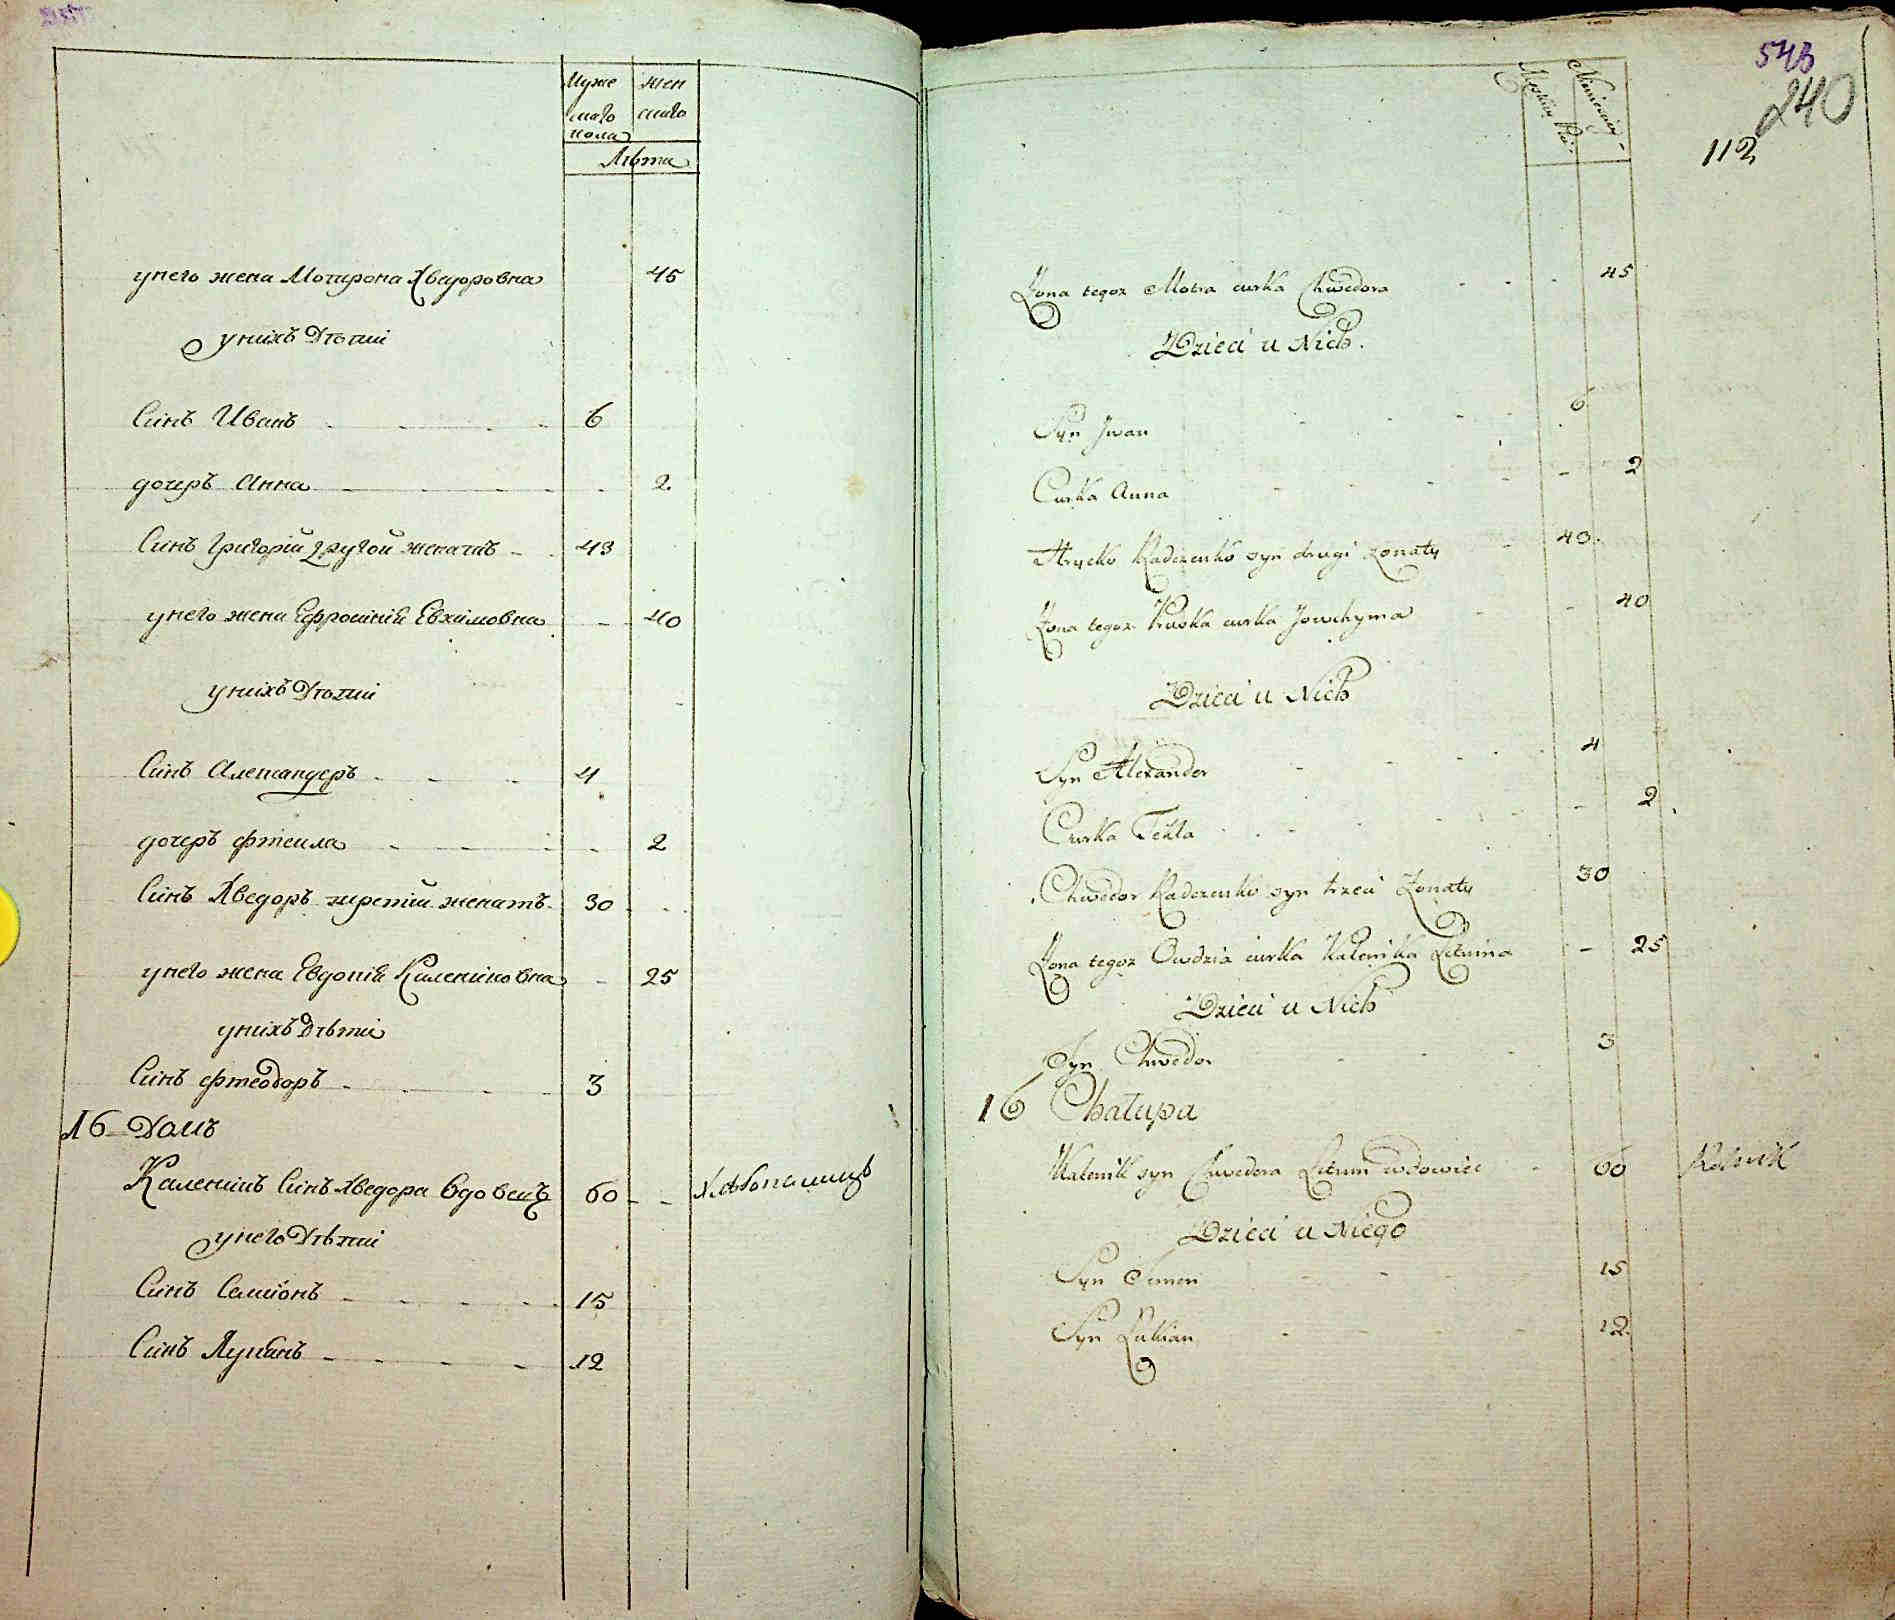 Муже
скаго
пола
жен
скаго
Лѣта
унего жена Мотрона Хведоровна 45
унихъ Дѣтии
Синъ Иванъ 6
дочеръ Анна 2
Синъ Григорій другой женатъ 43
унего жена Ефросинія Евхимовна 40
унихъ Дѣтии
Синъ Александеръ 4
дочеръ Фтекла 2
Синъ Хведоръ третий женатъ 30
унего жена Евдокія Калениковна 25
унихъ Дѣтии
Синъ Фтеодоръ 3
16 Домъ
Каленикъ Синъ Хведора Вдовецъ 60 Хлѣбопашецъ
унего Дѣтии
Синъ Семионъ 15
Синъ Лукіанъ 12
543
240
112
Żona tegoz Motra curka Chwedora 45
Dzieci u Nich.
Syn Jwan 6
Curka Anna 2
Hrycko syn drugi zonaty 43
Żona tegoz Pruska curka Jowchyma 40
Dzieci u Nich
Syn Alexander 4
Curka Tekla 2
Chwedor syn trzeci Zonaty 30
Żona tegoz Owdzia curka Kalenika Litwina 25
Dzieci u Nich
Syn Chwedor 3
16 Chałupa
Kalenik syn Chwedora Litwin wdowiec 60 Rolnik
Dzieci u Niego
Syn Simon 15
Syn Łukian 12